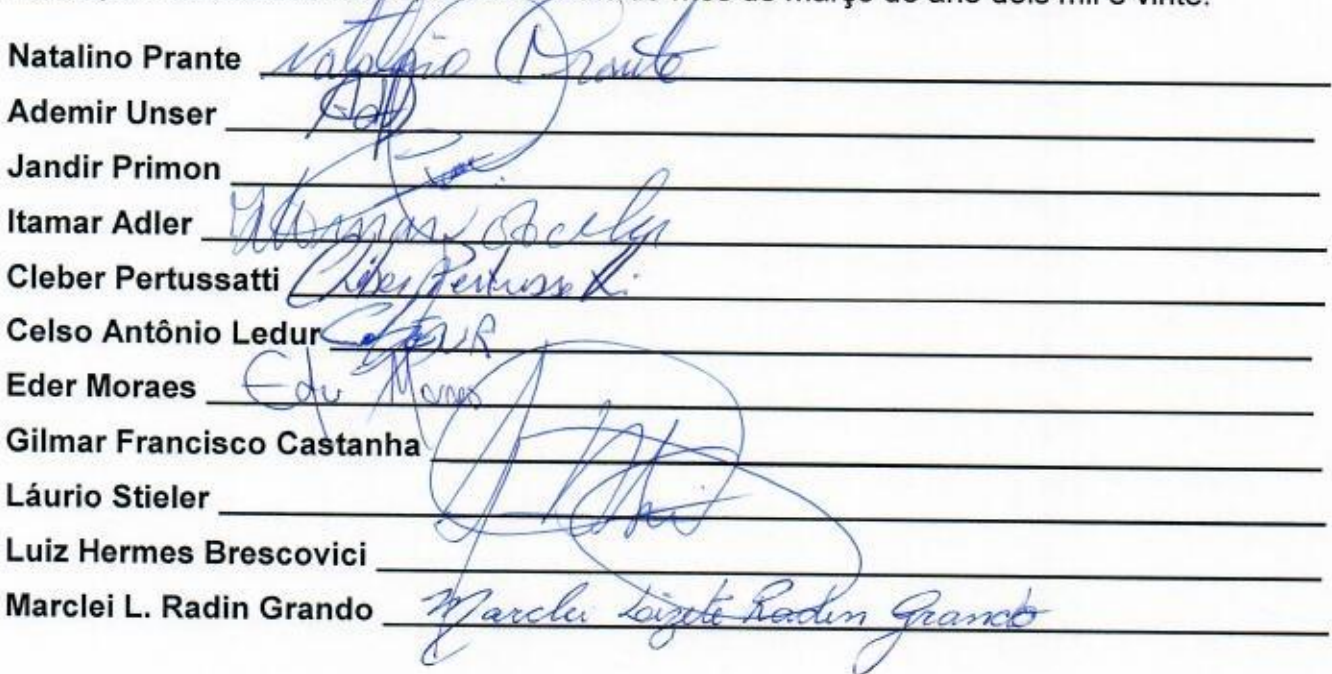 março do ano dois mil e vinte.
Natalino Prante Natalino Prante
Ademir Unser
Jandir Primon
Itamar Adler
Cleber Pertussatti Cleber Pertussatti
Celso Antônio Ledur
Eder Moraes Eder Moraes
Gilmar Francisco Castanha
Láurio Stieler
Luiz Hermes Brescovici
Marclei L. Radin Grando Marclei Loizete Radin Grando